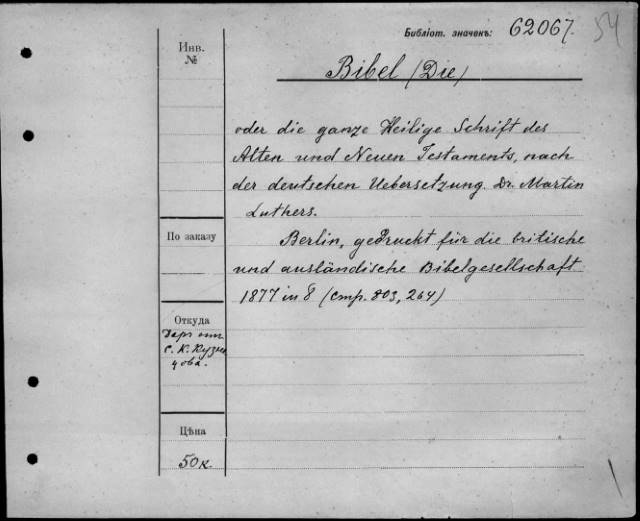 Библіот. значекъ: 62067. 54
Инв.
№
Bibel (Die)
oder die ganze Heilige Schrift des
Alten und Neuen Testaments, nach
der deutschen Uebersetzung Dr. Martin
Luthers.
Berlin, gedruckt für die britische
und ausländische Bibelgesellschaft
1877 in 8 (стр. 803, 264)
По заказу
Откуда
Даръ отъ
С. К. Кузне
цова.
Цѣна
50 к